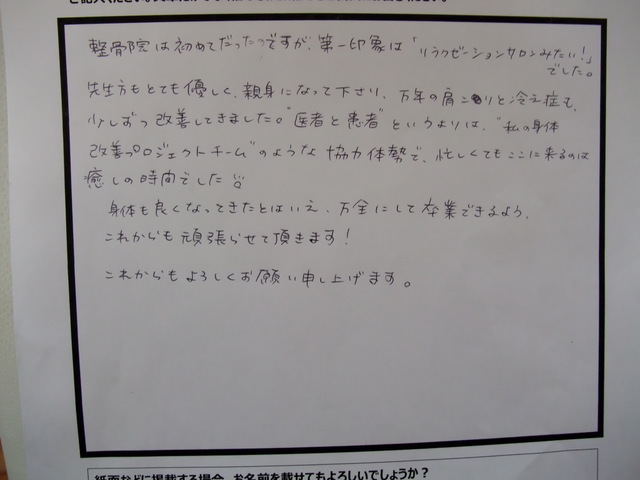 整骨院は初めてだったのですが、第一印象は「リラクゼーションサロンみたい!」
でした。
先生方もとても優しく、親身になって下さり、万年の肩こりと冷え症も、
少しずつ改善してきました。"医者と患者"というよりは、"私の身体
改善プロジェクトチーム"のような協力体勢で、忙しくてもここに来るのは
癒しの時間でした
身体も良くなってきたとはいえ、万全にして卒業できるよう、
これからも頑張らせて頂きます!
これからもよろしくお願い申し上げます。
紙面などに掲載する場合、お名前を載せてもよろしいでしょうか?